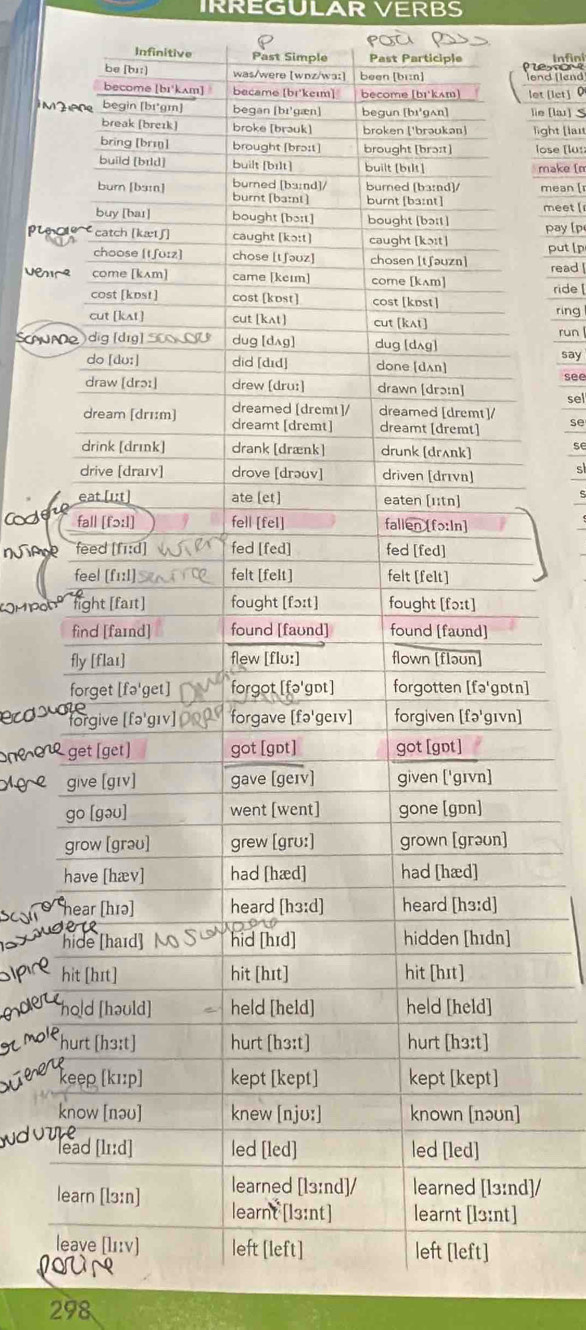 IRREGULAR VERBS
P
Infinitive Past Simple Past Participle Infini
be [bɪː] was/were [wɒz/wɜː] been [bɪːn] lend [lend
become [bɪ'kʌm] became [bɪ'keɪm] become [bɪ'kʌm] let [let]
begin [bɪ'gɪn] began [bɪ'gæn] begun [bɪ'gʌn] lie [laɪ]
break [breɪk] broke [brəuk] broken ['brəukən] light [laɪt
bring [brɪŋ] brought [brɔːt] brought [brɔːt] lose [luː
build [bɪld] built [bɪlt] built [bɪlt] make [m
burn [bɜːn] burned [bɜːnd]/ burned [bɜːnd]/ mean [
burnt [bɜːnt] burnt [bɜːnt]
buy [baɪ] bought [bɔːt] bought [bɔːt] meet [
catch [kætʃ] caught [kɔːt] caught [kɔːt] pay [p
choose [tʃuːz] chose [tʃəuz] chosen [tʃəuzn] put [p
venire come [kʌm] came [keɪm] come [kʌm] read [
cost [kɒst] cost [kɒst] cost [kɒst] ride [
cut [kʌt] cut [kʌt] cut [kʌt] ring
dig [dɪg] dug [dʌg] dug [dʌg] run [
do [duː] did [dɪd] done [dʌn] say
draw [drɔː] drew [druː] drawn [drɔːn] see
dream [drɪːm] dreamed [dremt]/ dreamed [dremt]/ sel
dreamt [dremt] dreamt [dremt] se
drink [drɪnk] drank [drænk] drunk [drʌnk] se
drive [draɪv] drove [drəuv] driven [drɪvn] sl
eat [ɪːt] ate [et] eaten [ɪːtn] s
cadere fall [fɔːl] fell [fel] fallen [fɔːln]
feed [fɪːd] fed [fed] fed [fed]
feel [fɪːl] felt [felt] felt [felt]
fight [faɪt] fought [fɔːt] fought [fɔːt]
find [faɪnd] found [faʊnd] found [faʊnd]
fly [flaɪ] flew [fluː] flown [fləun]
forget [fə'get] forgot [fə'gɒt] forgotten [fə'gɒtn]
forgive [fə'gɪv] forgave [fə'geɪv] forgiven [fə'gɪvn]
get [get] got [gɒt] got [gɒt]
give [gɪv] gave [geɪv] given ['gɪvn]
go [gəu] went [went] gone [gɒn]
grow [grəu] grew [gruː] grown [grəun]
have [hæv] had [hæd] had [hæd]
hear [hɪə] heard [hɜːd] heard [hɜːd]
hide [haɪd] hid [hɪd] hidden [hɪdn]
hit [hɪt] hit [hɪt] hit [hɪt]
hold [həuld] held [held] held [held]
hurt [hɜːt] hurt [hɜːt] hurt [hɜːt]
keep [kɪːp] kept [kept] kept [kept]
know [nəu] knew [njuː] known [nəun]
lead [lɪːd] led [led] led [led]
learn [lɜːn] learned [lɜːnd]/ learned [lɜːnd]/
learnt [lɜːnt] learnt [lɜːnt]
leave [lɪːv] left [left] left [left]
298